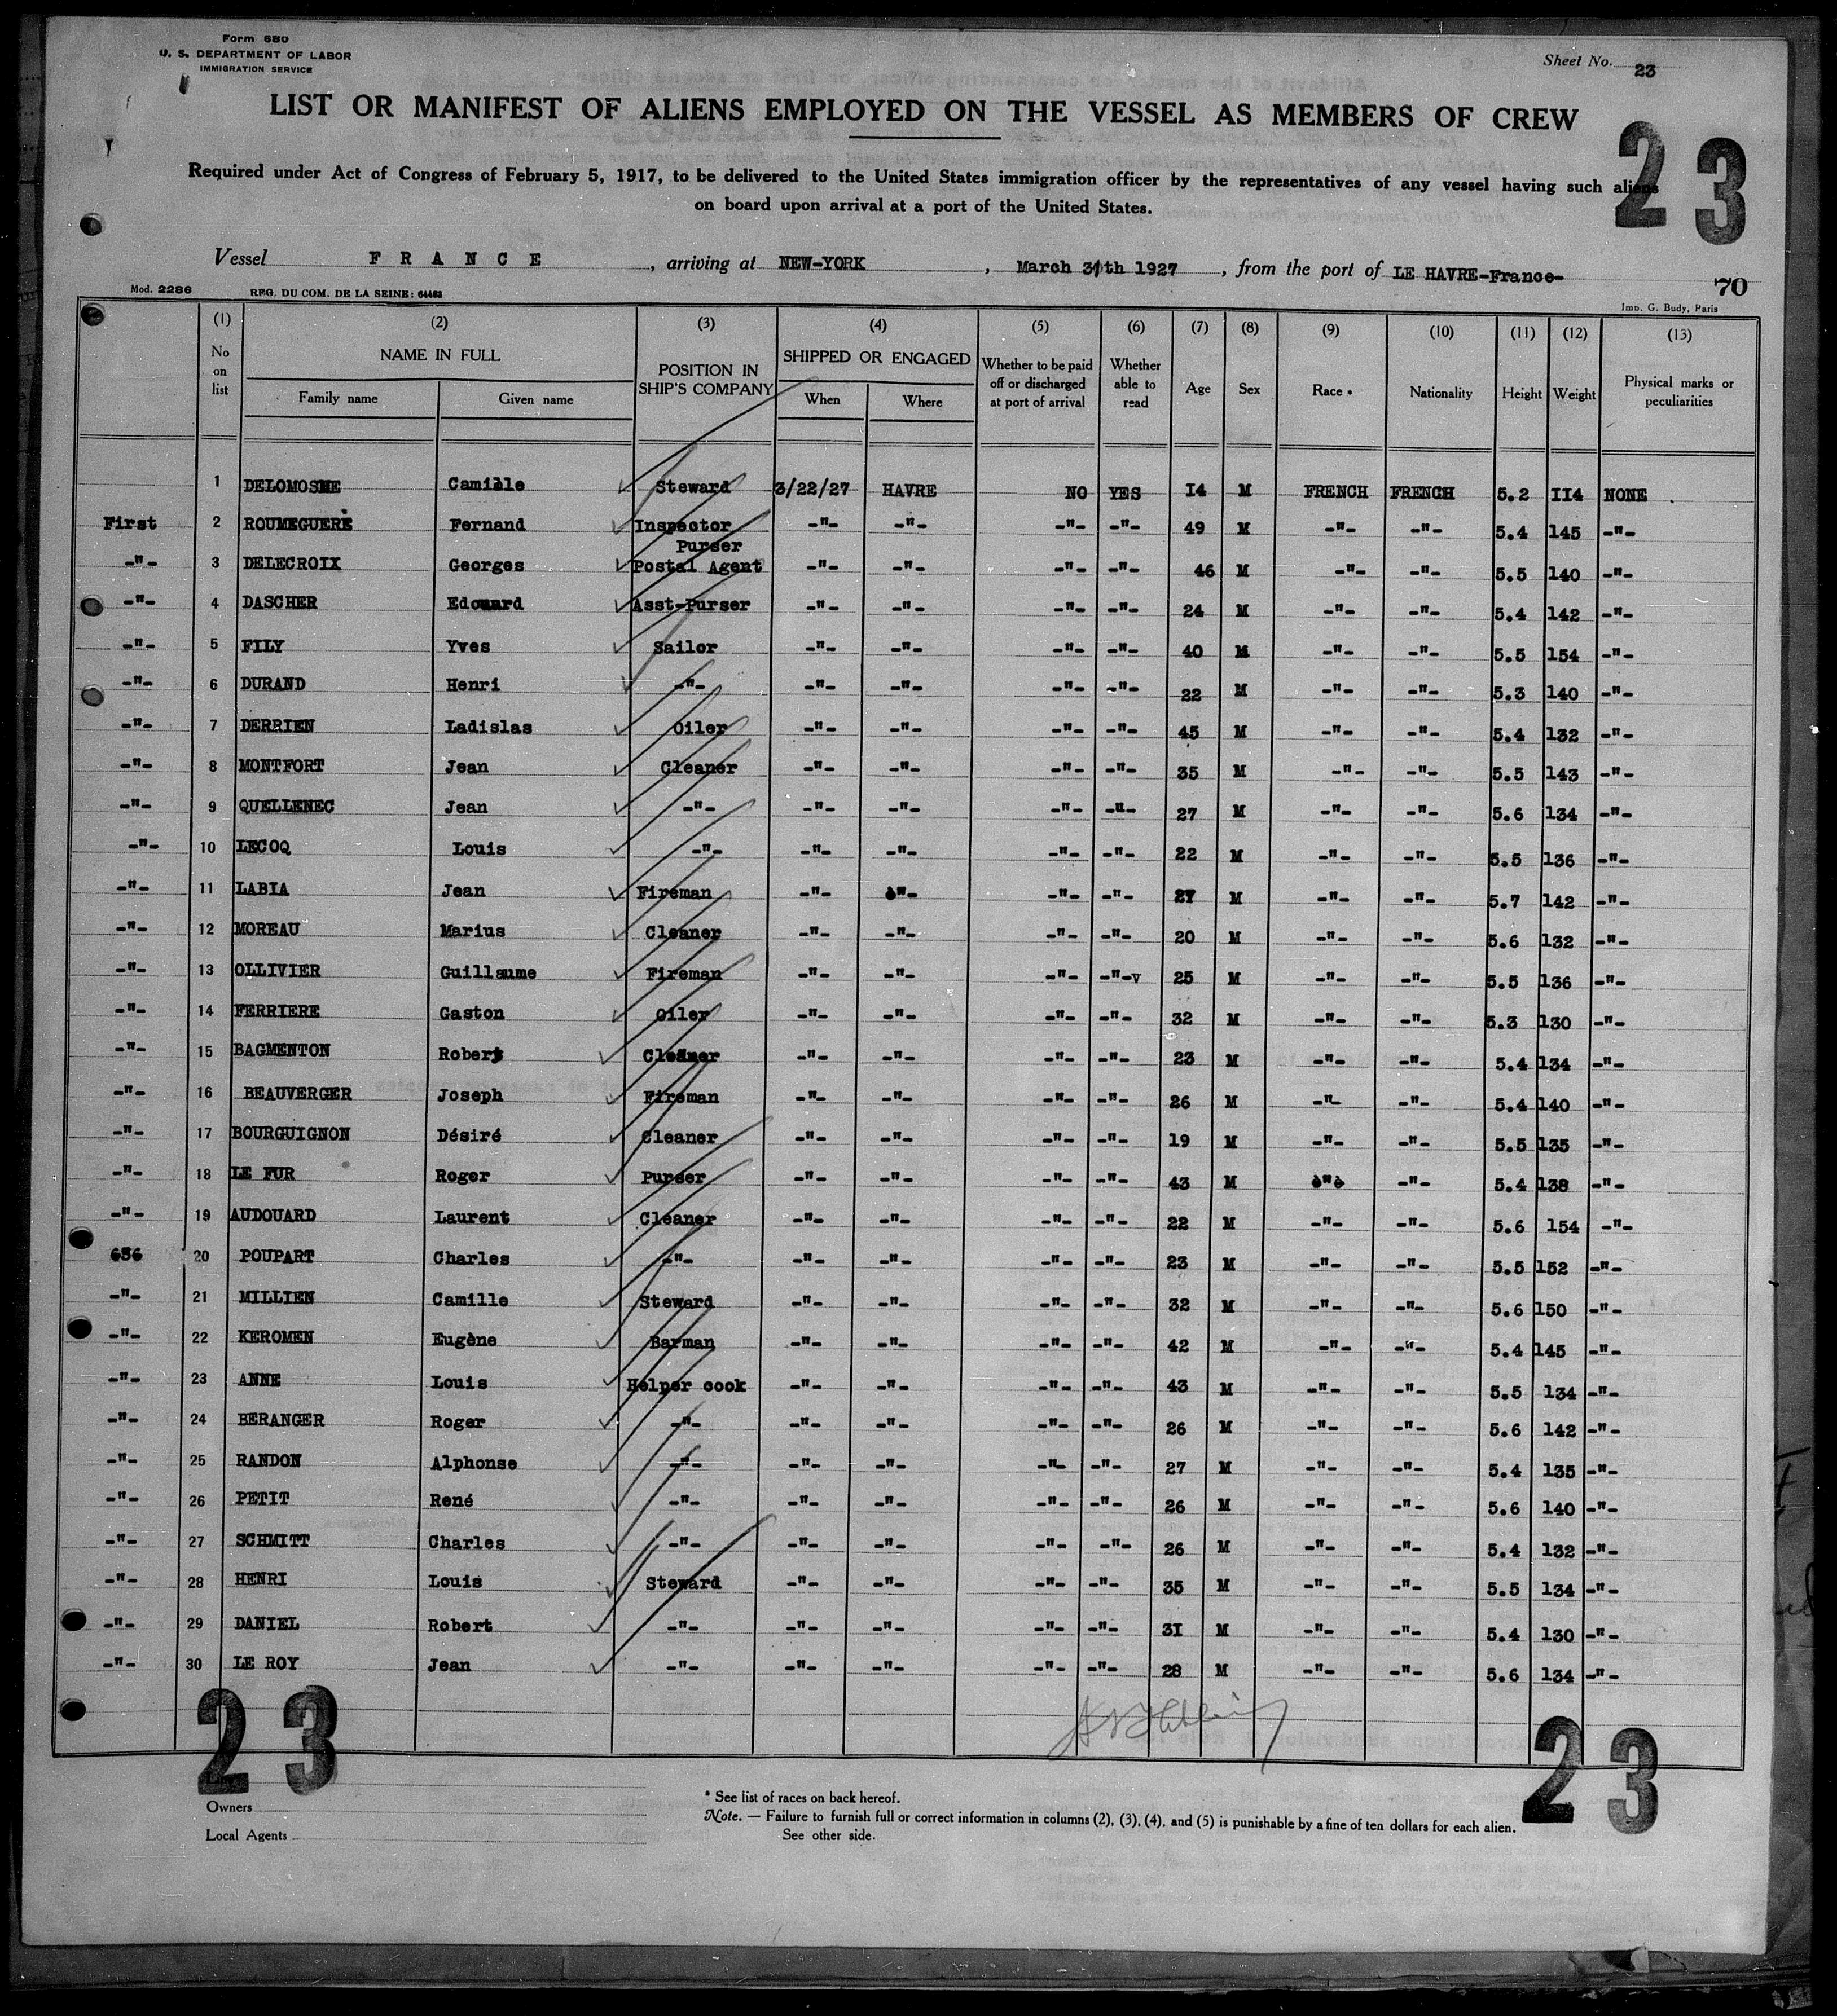 Form 680
U. S. DEPARTMENT OF LABOR
IMMIGRATION SERVICE
Sheet No. 23
LIST OR MANIFEST OF ALIENS EMPLOYED ON THE VESSEL AS MEMBERS OF CREW
23
Required under Act of Congress of February 5, 1917, to be delivered to the United States immigration officer by the representatives of any vessel having such aliens
on board upon arrival at a port of the United States.
Vessel F R A N C E , arriving at NEW-YORK , March 31th 1927 , from the port of LE HAVRE-France-
Mod. 2286 REG. DU COM. DE LA SEINE: 64483 70
Imp. G. Budy, Paris
(1) (2) (3) (4) (5) (6) (7) (8) (9) (10) (11) (12) (13)
No on list NAME IN FULL Family name Given name POSITION IN SHIP'S COMPANY SHIPPED OR ENGAGED When Where Whether to be paid off or discharged at port of arrival Whether able to read Age Sex Race * Nationality Height Weight Physical marks or peculiarities
1 DELOMOSNE Camille Steward 3/22/27 HAVRE NO YES I4 M FRENCH FRENCH 5.2 II4 NONE
First 2 ROUMEGUERE Fernand Inspector -"- -"- -"- -"- 49 M -"- -"- 5.4 145 -"-
Purser
-"- 3 DELECROIX Georges Postal Agent -"- -"- -"- -"- 46 M -"- -"- 5.5 140 -"-
-"- 4 DASCHER Edouard Asst-Purser -"- -"- -"- -"- 24 M -"- -"- 5.4 142 -"-
-"- 5 FILY Yves Sailor -"- -"- -"- -"- 40 M -"- -"- 5.5 154 -"-
-"- 6 DURAND Henri -"- -"- -"- -"- -"- 22 M -"- -"- 5.3 140 -"-
-"- 7 DERRIEN Ladislas Oiler -"- -"- -"- -"- 45 M -"- -"- 5.4 132 -"-
-"- 8 MONTFORT Jean Cleaner -"- -"- -"- -"- 35 M -"- -"- 5.5 143 -"-
-"- 9 QUELLENEC Jean -"- -"- -"- -"- -"- 27 M -"- -"- 5.6 134 -"-
-"- 10 LECOQ Louis -"- -"- -"- -"- -"- 22 M -"- -"- 5.5 136 -"-
-"- 11 LABIA Jean Fireman -"- -"- -"- -"- 27 M -"- -"- 5.7 142 -"-
-"- 12 MOREAU Marius Cleaner -"- -"- -"- -"- 20 M -"- -"- 5.6 132 -"-
-"- 13 OLLIVIER Guillaume Fireman -"- -"- -"- -"-v 25 M -"- -"- 5.5 136 -"-
-"- 14 FERRIERE Gaston Oiler -"- -"- -"- -"- 32 M -"- -"- 5.3 130 -"-
-"- 15 BAGMENTON Robert Cleaner -"- -"- -"- -"- 23 M -"- -"- 5.4 134 -"-
-"- 16 BEAUVERGER Joseph Fireman -"- -"- -"- -"- 26 M -"- -"- 5.4 140 -"-
-"- 17 BOURGUIGNON Désiré Cleaner -"- -"- -"- -"- 19 M -"- -"- 5.5 135 -"-
-"- 18 LE FUR Roger Purser -"- -"- -"- -"- 43 M -"- -"- 5.4 138 -"-
-"- 19 AUDOUARD Laurent Cleaner -"- -"- -"- -"- 22 M -"- -"- 5.6 154 -"-
656 20 POUPART Charles -"- -"- -"- -"- -"- 23 M -"- -"- 5.5 152 -"-
-"- 21 MILLIEN Camille Steward -"- -"- -"- -"- 32 M -"- -"- 5.6 150 -"-
-"- 22 KEROMEN Eugène Barman -"- -"- -"- -"- 42 M -"- -"- 5.4 145 -"-
-"- 23 ANNE Louis Helper cook -"- -"- -"- -"- 43 M -"- -"- 5.5 134 -"-
-"- 24 BERANGER Roger -"- -"- -"- -"- -"- 26 M -"- -"- 5.6 142 -"-
-"- 25 RANDON Alphonse -"- -"- -"- -"- -"- 27 M -"- -"- 5.4 135 -"-
-"- 26 PETIT René -"- -"- -"- -"- -"- 26 M -"- -"- 5.6 140 -"-
-"- 27 SCHMITT Charles -"- -"- -"- -"- -"- 26 M -"- -"- 5.4 132 -"-
-"- 28 HENRI Louis Steward -"- -"- -"- -"- 35 M -"- -"- 5.5 134 -"-
-"- 29 DANIEL Robert -"- -"- -"- -"- -"- 3I M -"- -"- 5.4 130 -"-
-"- 30 LE ROY Jean -"- -"- -"- -"- -"- 28 M -"- -"- 5.6 134 -"-
23 23
Owners
Local Agents
* See list of races on back hereof.
Note. — Failure to furnish full or correct information in columns (2), (3), (4), and (5) is punishable by a fine of ten dollars for each alien.
See other side.